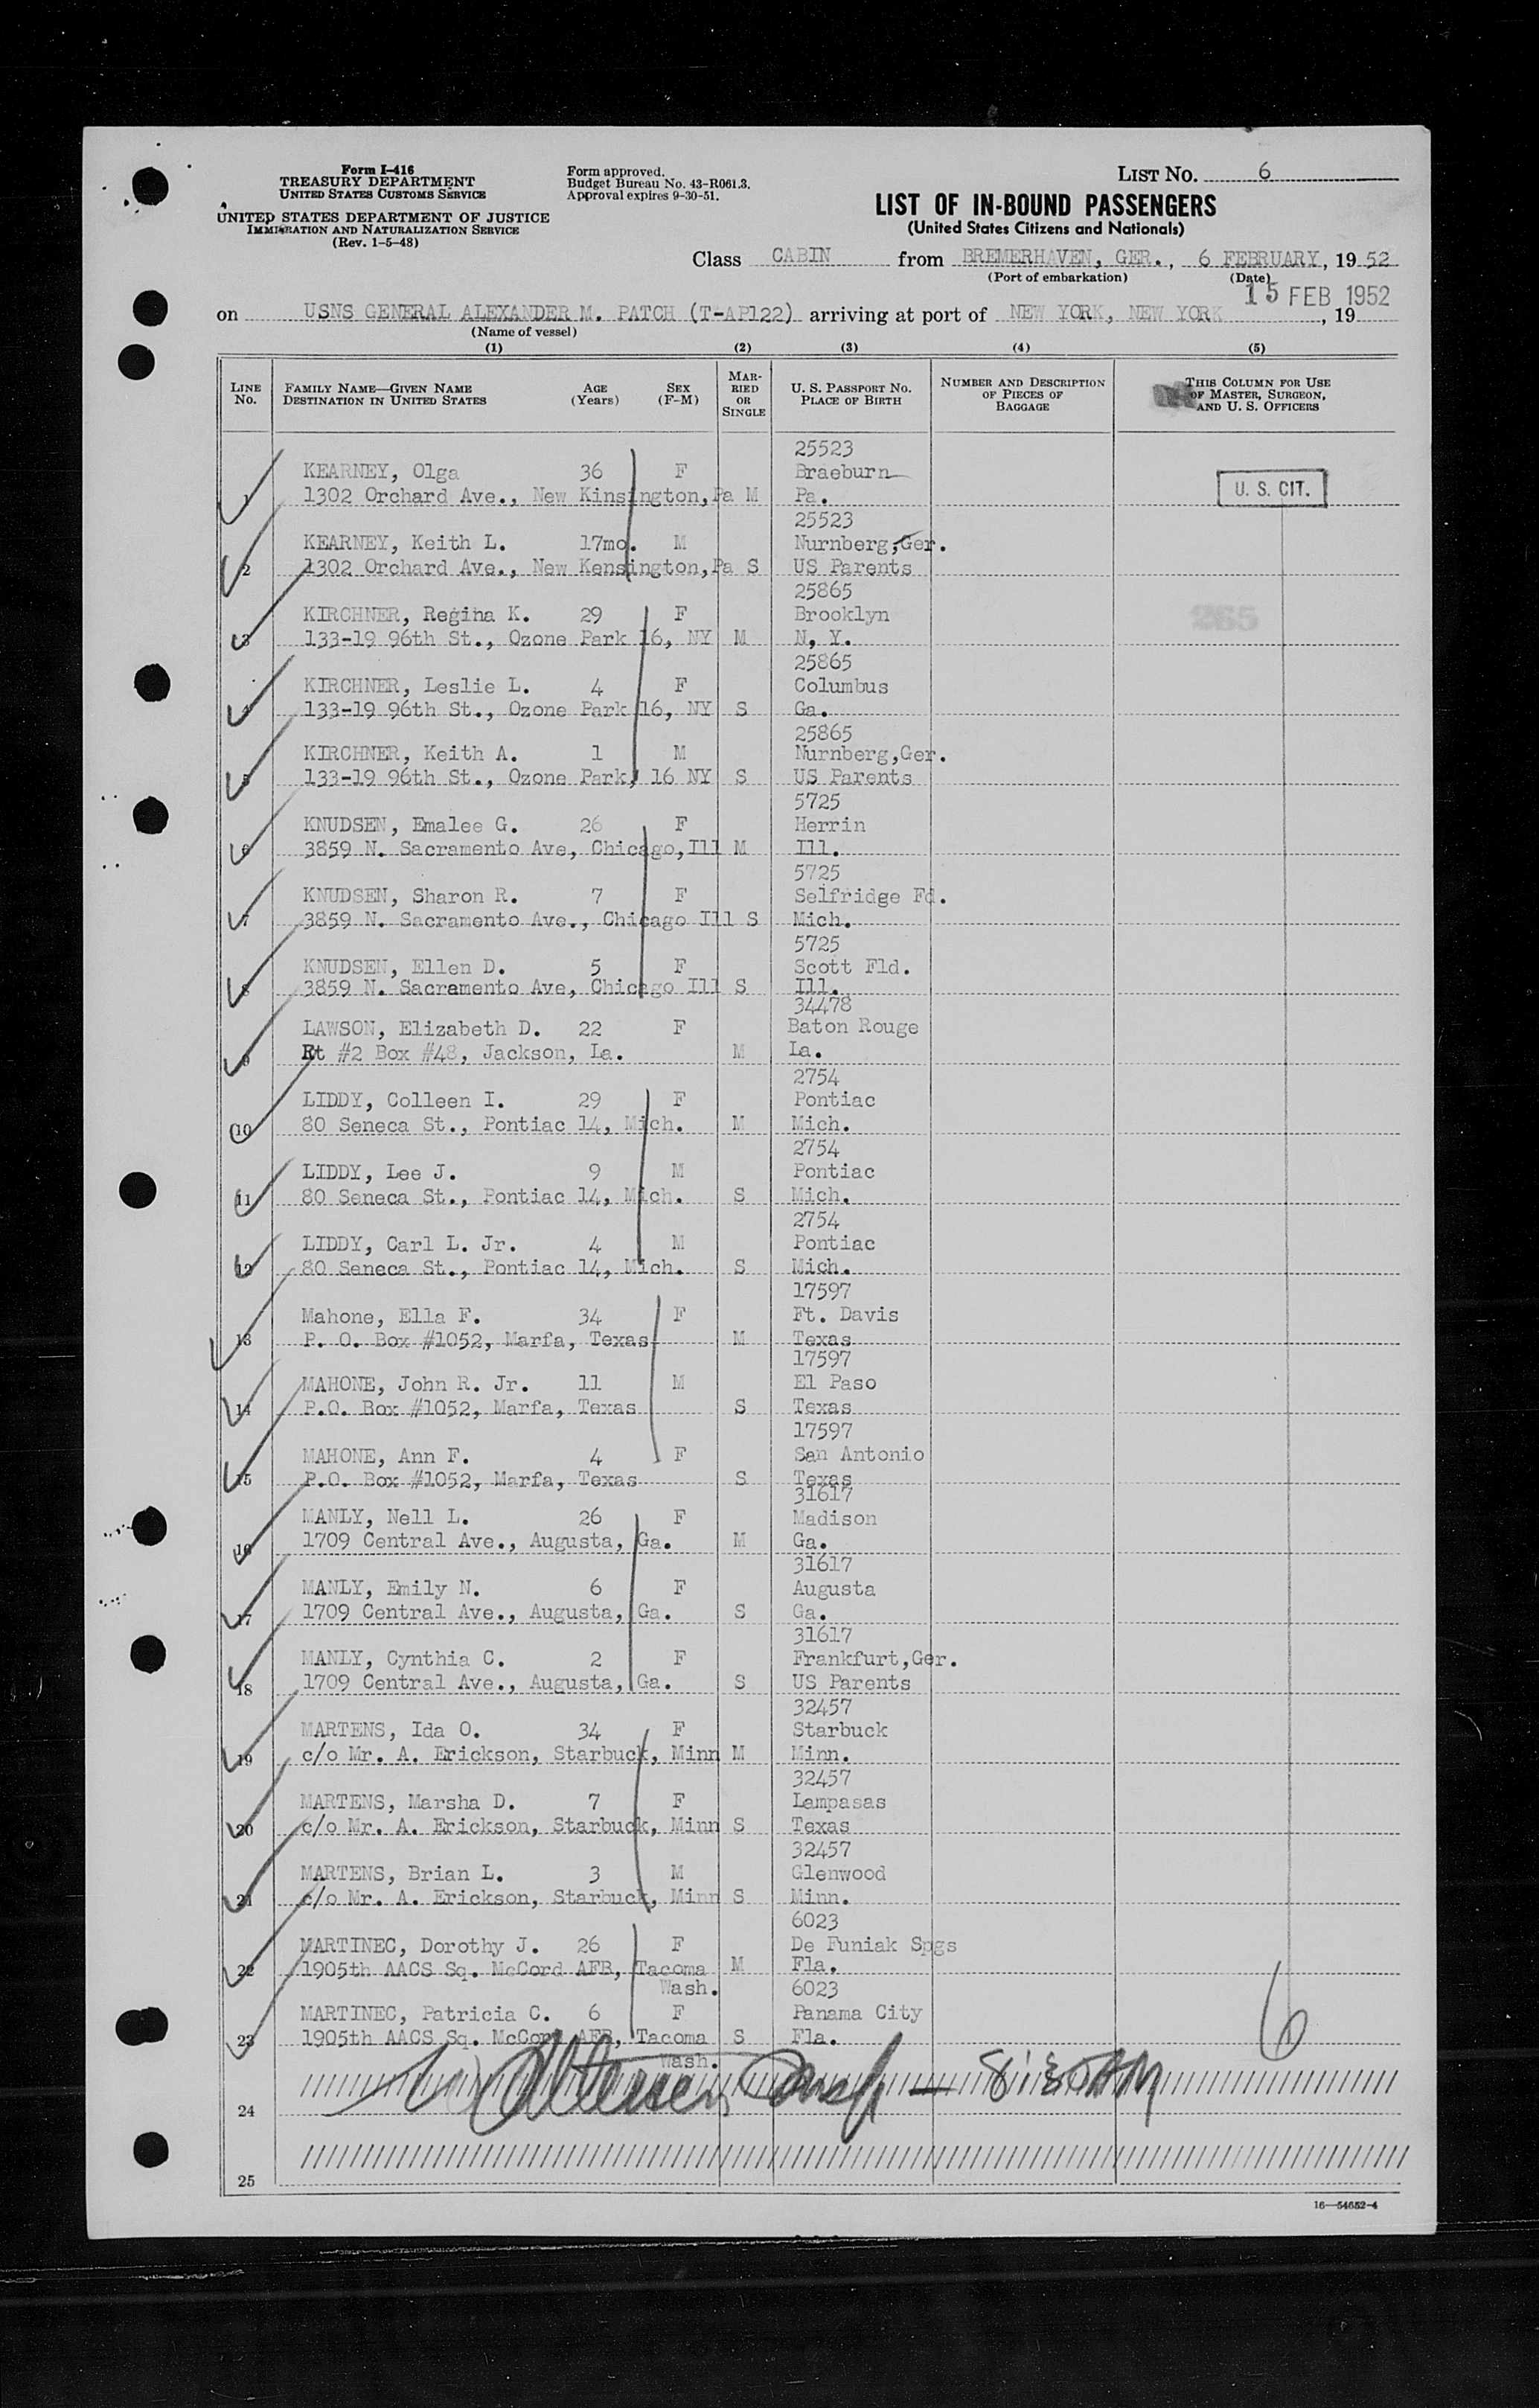 Form I-416
TREASURY DEPARTMENT
UNITED STATES CUSTOMS SERVICE
UNITED STATES DEPARTMENT OF JUSTICE
IMMIGRATION AND NATURALIZATION SERVICE
(Rev. 1-5-48)
Form approved.
Budget Bureau No. 43-R061.3.
Approval expires 9-30-51.
LIST No. 6
LIST OF IN-BOUND PASSENGERS
(United States Citizens and Nationals)
Class CABIN from BREMERHAVEN, GER., 6 FEBRUARY, 1952
(Port of embarkation) (Date)
15 FEB 1952
on USNS GENERAL ALEXANDER M. PATCH (T-AP122) arriving at port of NEW YORK, NEW YORK, 19
(Name of vessel)
(1) (2) (3) (4) (5)
LINE No. FAMILY NAME—GIVEN NAME DESTINATION IN UNITED STATES AGE (Years) SEX (F-M) MARRIED OR SINGLE U. S. PASSPORT NO. PLACE OF BIRTH NUMBER AND DESCRIPTION OF PIECES OF BAGGAGE THIS COLUMN FOR USE OF MASTER, SURGEON, AND U. S. OFFICERS
25523
KEARNEY, Olga 36 F Braeburn
1 1302 Orchard Ave., New Kinsington,Pa M Pa. U. S. CIT.
25523
KEARNEY, Keith L. 17mo. M Nurnberg,Ger.
2 1302 Orchard Ave., New Kensington,Pa S US Parents
25865
KIRCHNER, Regina K. 29 F Brooklyn 265
3 133-19 96th St., Ozone Park 16, NY M N, Y.
25865
KIRCHNER, Leslie L. 4 F Columbus
4 133-19 96th St., Ozone Park 16, NY S Ga.
25865
KIRCHNER, Keith A. 1 M Nurnberg,Ger.
5 133-19 96th St., Ozone Park, 16 NY S US Parents
5725
KNUDSEN, Emalee G. 26 F Herrin
6 3859 N. Sacramento Ave, Chicago,Ill M Ill.
5725
KNUDSEN, Sharon R. 7 F Selfridge Fd.
7 3859 N. Sacramento Ave., Chicago Ill S Mich.
5725
KNUDSEN, Ellen D. 5 F Scott Fld.
8 3859 N. Sacramento Ave, Chicago Ill S Ill.
34478
LAWSON, Elizabeth D. 22 F Baton Rouge
9 Rt #2 Box #48, Jackson, La. M La.
2754
LIDDY, Colleen I. 29 F Pontiac
10 80 Seneca St., Pontiac 14, Mich. M Mich.
2754
LIDDY, Lee J. 9 M Pontiac
11 80 Seneca St., Pontiac 14, Mich. S Mich.
2754
LIDDY, Carl L. Jr. 4 M Pontiac
12 80 Seneca St., Pontiac 14, Mich. S Mich.
17597
Mahone, Ella F. 34 F Ft. Davis
13 P. O. Box #1052, Marfa, Texas M Texas
17597
MAHONE, John R. Jr. 11 M El Paso
14 P.O. Box #1052, Marfa, Texas S Texas
17597
MAHONE, Ann F. 4 F San Antonio
15 P.O. Box #1052, Marfa, Texas S Texas
31617
MANLY, Nell L. 26 F Madison
16 1709 Central Ave., Augusta, Ga. M Ga.
31617
MANLY, Emily N. 6 F Augusta
17 1709 Central Ave., Augusta, Ga. S Ga.
31617
MANLY, Cynthia C. 2 F Frankfurt,Ger.
18 1709 Central Ave., Augusta, Ga. S US Parents
32457
MARTENS, Ida O. 34 F Starbuck
19 c/o Mr. A. Erickson, Starbuck, Minn M Minn.
32457
MARTENS, Marsha D. 7 F Lampasas
20 c/o Mr. A. Erickson, Starbuck, Minn S Texas
32457
MARTENS, Brian L. 3 M Glenwood
21 c/o Mr. A. Erickson, Starbuck, Minn S Minn.
6023
MARTINEC, Dorothy J. 26 F De Funiak Spgs
22 1905th AACS Sq. McCord AFB, Tacoma M Fla.
Wash. 6023
MARTINEC, Patricia C. 6 F Panama City 6
23 1905th AACS Sq. McCord AFB, Tacoma S Fla.
Wash.
8:30AM
24
25
16—54652-4